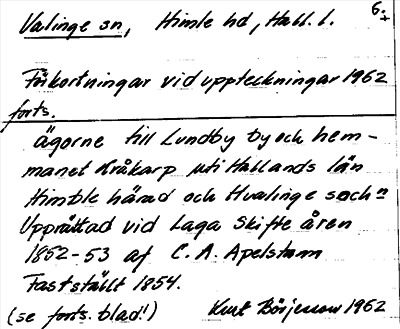 Valinge sn, Himle hd, Hall. l. 6:
Förkortningar vid uppteckningar 1962
forts.
ägorne till Lundby by och hem-
manet Kråkarp uti Hallands län
Himble härad och Hvalinge soch=n
Upprättad vid Laga Skifte åren
1852-53 af C. A. Apelstam
Fastställt 1854.
(se forts. blad!) Kurt Börjesson 1962